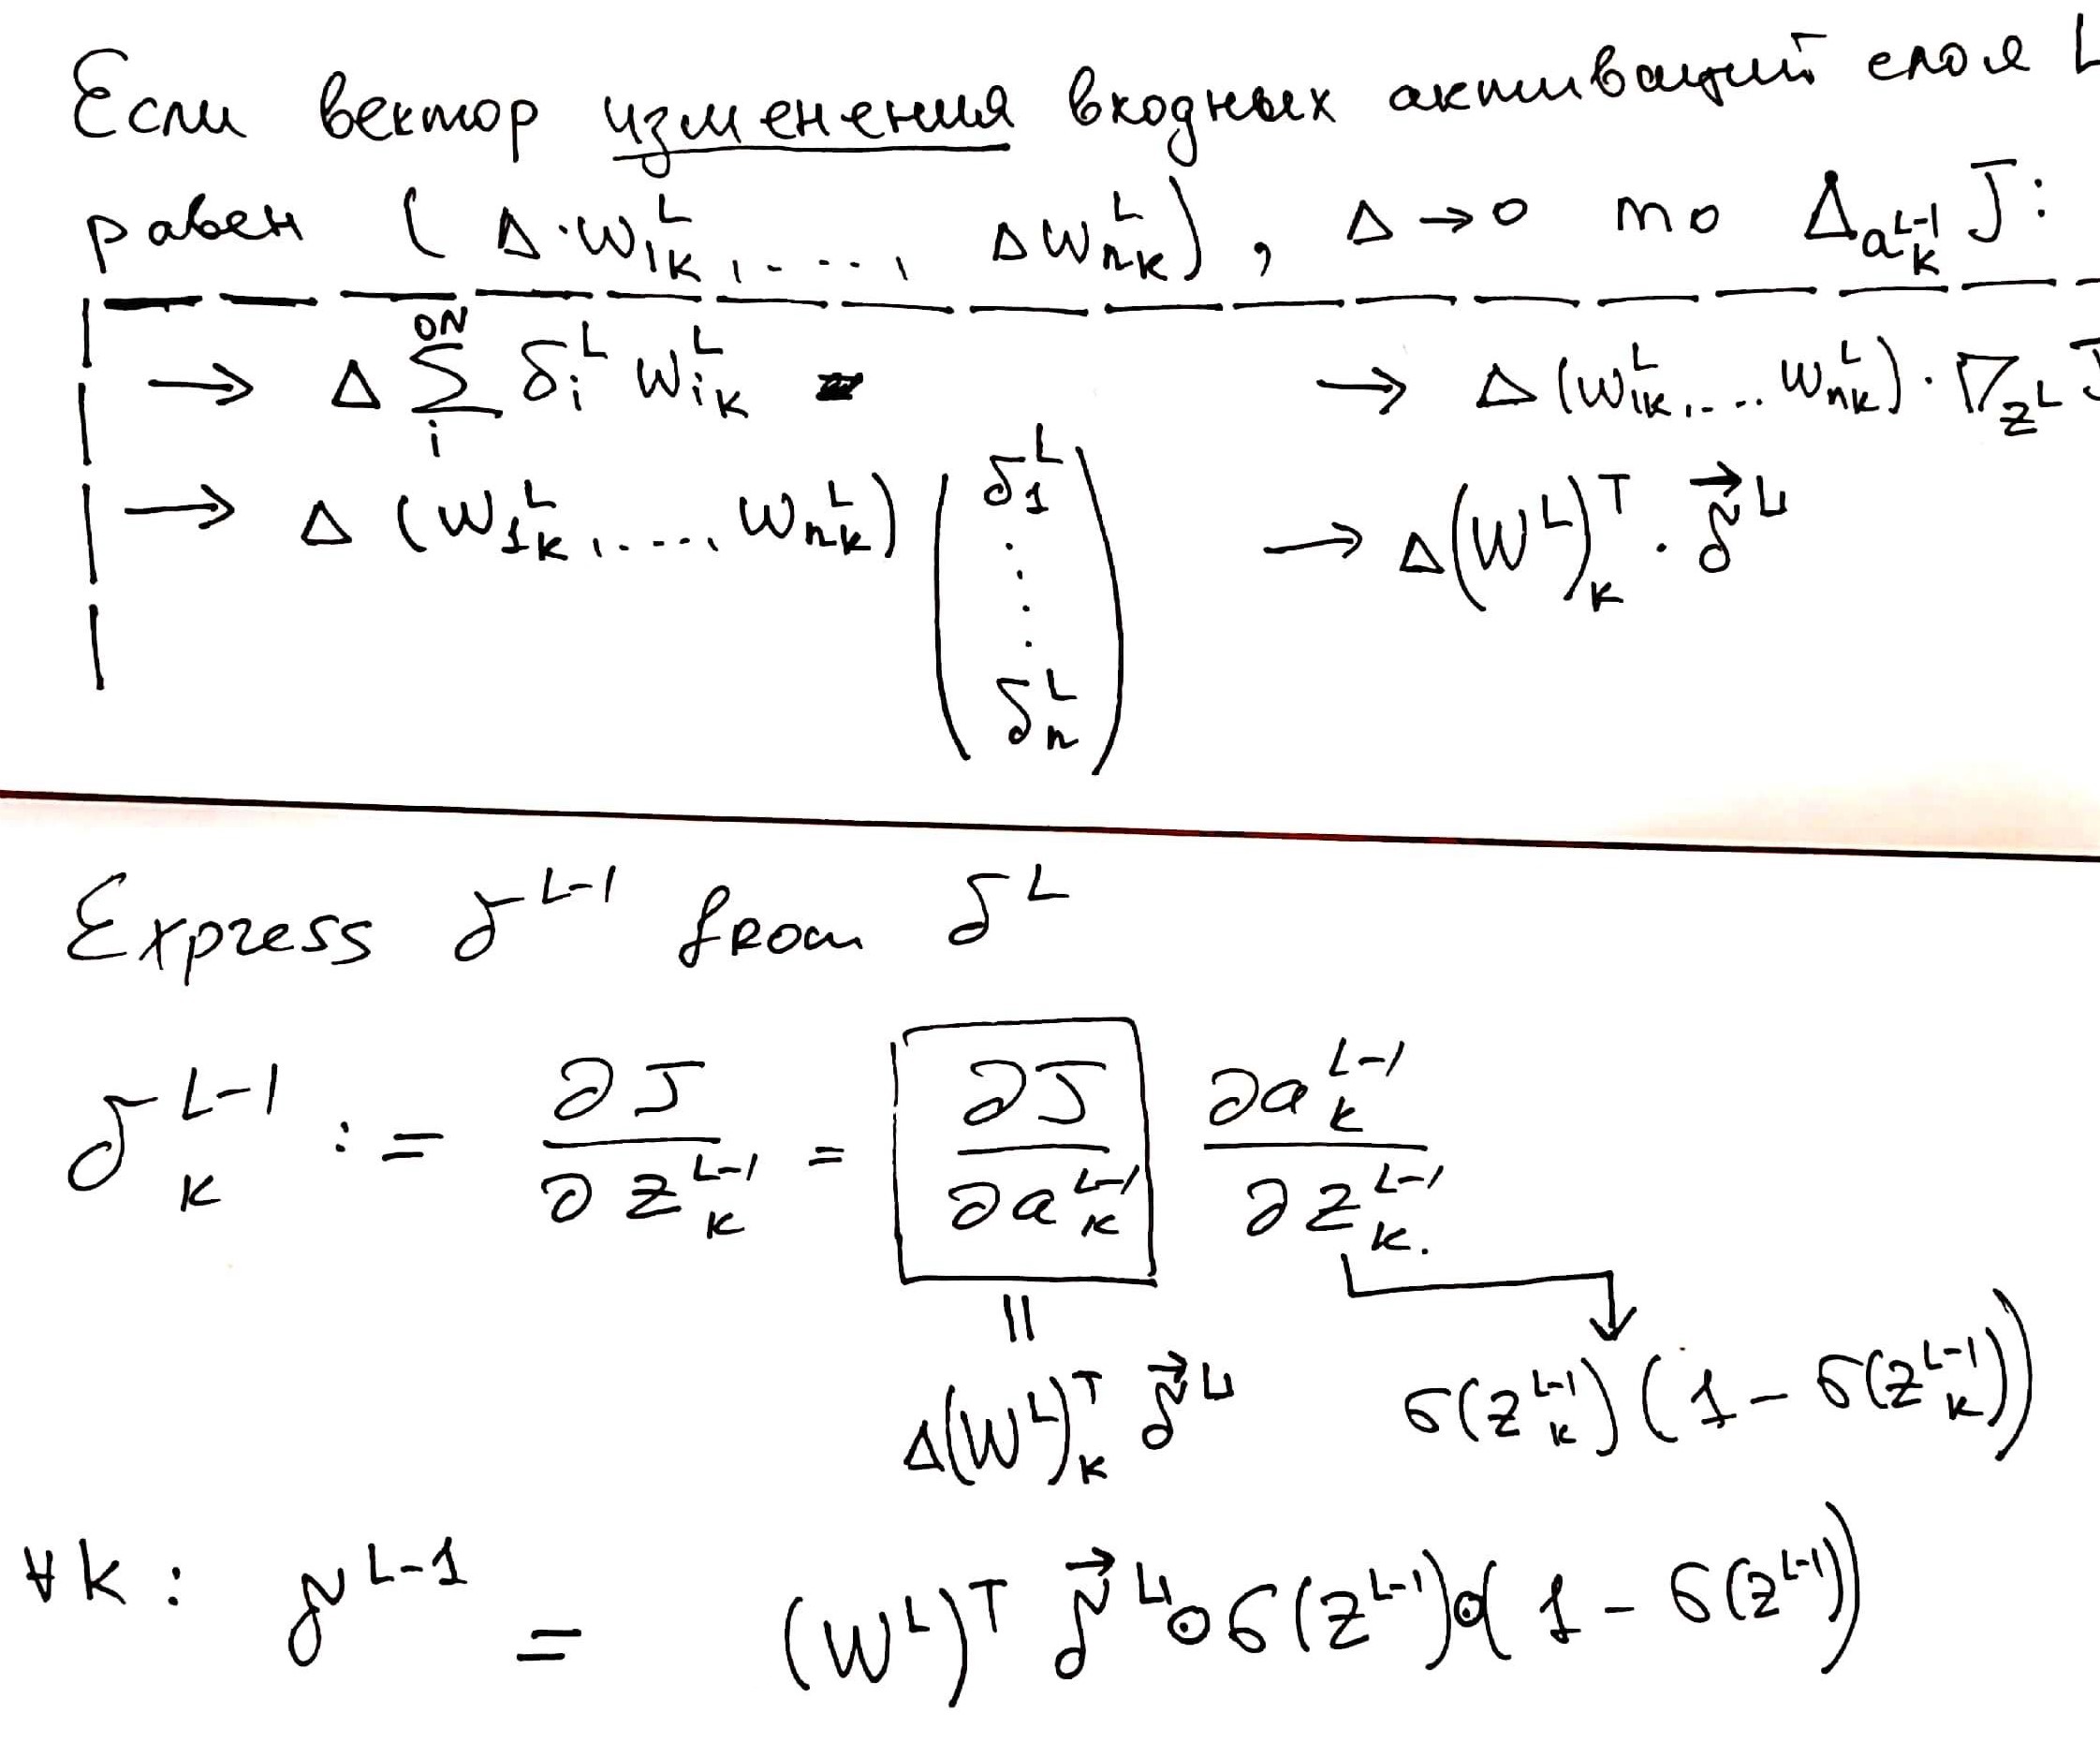 Если вектор изменения входных активаций слоя L
равен ( Δ·w₁ₖᴸ, ...., Δwₙₖᴸ ), Δ → 0 то Δ_{a_k^{L-1}} J:
→ Δ ∑_i^{ON} δ_i^L w_{ik}^L → Δ (w_{1k}^L, ... w_{nk}^L) · ∇_{z^L} J
→ Δ (w_{1k}^L, ...., w_{nk}^L) ( δ_1^L ⋮ δ_n^L ) → Δ(W^L)_k^T · \vec{δ}^L
Express δ^{L-1} from δ^L
δ_k^{L-1} := ∂J / ∂z_k^{L-1} = ∂J / ∂a_k^{L-1} ∂a_k^{L-1} / ∂z_k^{L-1}
||
Δ(W^L)_k^T \vec{δ}^L σ(z_k^{L-1}) (1 - σ(z_k^{L-1}))
∀k : δ^{L-1} = (W^L)^T \vec{δ}^L ⊙ σ(z^{L-1}) ⊙ (1 - σ(z^{L-1}))